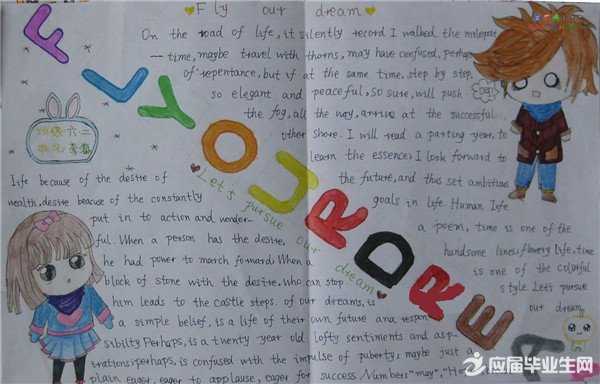 Fly our dream
On the road of life, it silently record I walked the malepate
time, maybe travel with thorns, may have confused, perhaps
of repentance, but if at the same time, step by step,
so elegant and peaceful, so sure, will push
the fog, all the way, arrive at the successful
other shore. I will read a parting year, to
learn the essence; I look forward to
the future, and thus set ambitious
goals in life. Human life
a poem, time is one of the
handsome lines; flowery life, time
is one of the colorful
style. Let's pursue
our dream
FLY OUR DREA
Let's pursue our dream
班级:六二
Life because of the desire of
wealth, desire beacuse of the constantly
put in to action and wonder-
ful. When a person has the desire,
he had power to march forward; When a
block of stone with the desire, who can stop
him leads to the castle steps. of our dreams, is
a simple belief, is a life of their own future and respon
sibility. Perhaps, is a twenty year old lofty sentiments and asp-
irations; perhaps, is confused with the impulse of puberty; maybe just a
plain eager, eager to applause, eager for success. Number: "may", "He
应届毕业生网